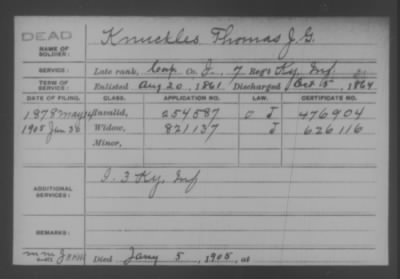 DEAD
NAME OF SOLDIER: Knuckles Thomas J. G.
SERVICE: Late rank, Cap. Co. I, 7 Reg't Ky. Inf
TERM OF SERVICE: Enlisted Aug 20, 1861 Discharged Oct 15, 1864
DATE OF FILING. CLASS. APPLICATION NO. LAW. CERTIFICATE NO.
1878 May Invalid, 254587 J 476904
1905 Jan 26 Widow, 821137 J 626116
Minor,
ADDITIONAL SERVICES: I. 3 Ky. Inf
REMARKS:
Died Jany 5, 1905, at